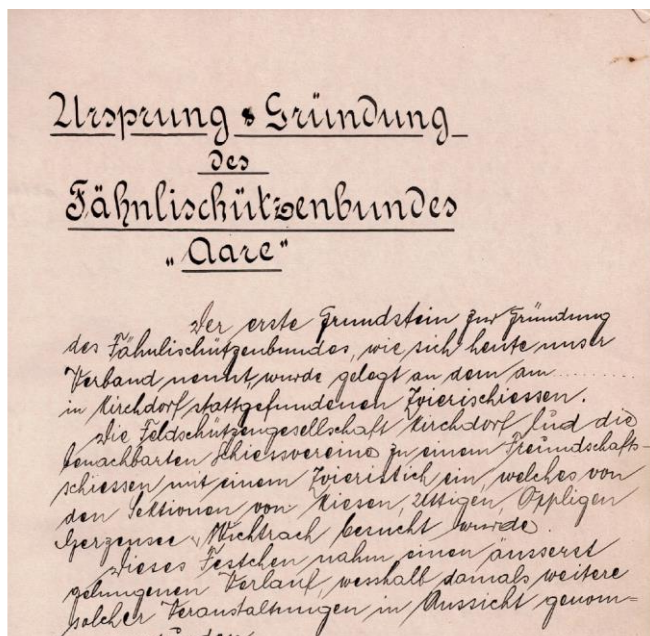 Ursprung & Gründung
des
Fähnlischützenbundes
„Aare“
Der erste Grundstein zur Gründung
des Fähnlischützenbundes, wie sich heute unser
Verband nennt, wurde gelegt an dem am ..........
in Kirchdorf stattgefundenen Zvierischiessen.
Die Feldschützengesellschaft Kirchdorf lud die
benachbarten Schiessvereine zu einem Freundschafts-
schiessen mit einem Zvieristich ein, welches von
den Sektionen von Kiesen, Uttigen, Oppligen
Gerzensee & Wichtrach besucht wurde.
Dieses Festchen nahm einen äusserst
gelungenen Verlauf, wesshalb damals weitere
solcher Veranstaltungen in Aussicht genom=